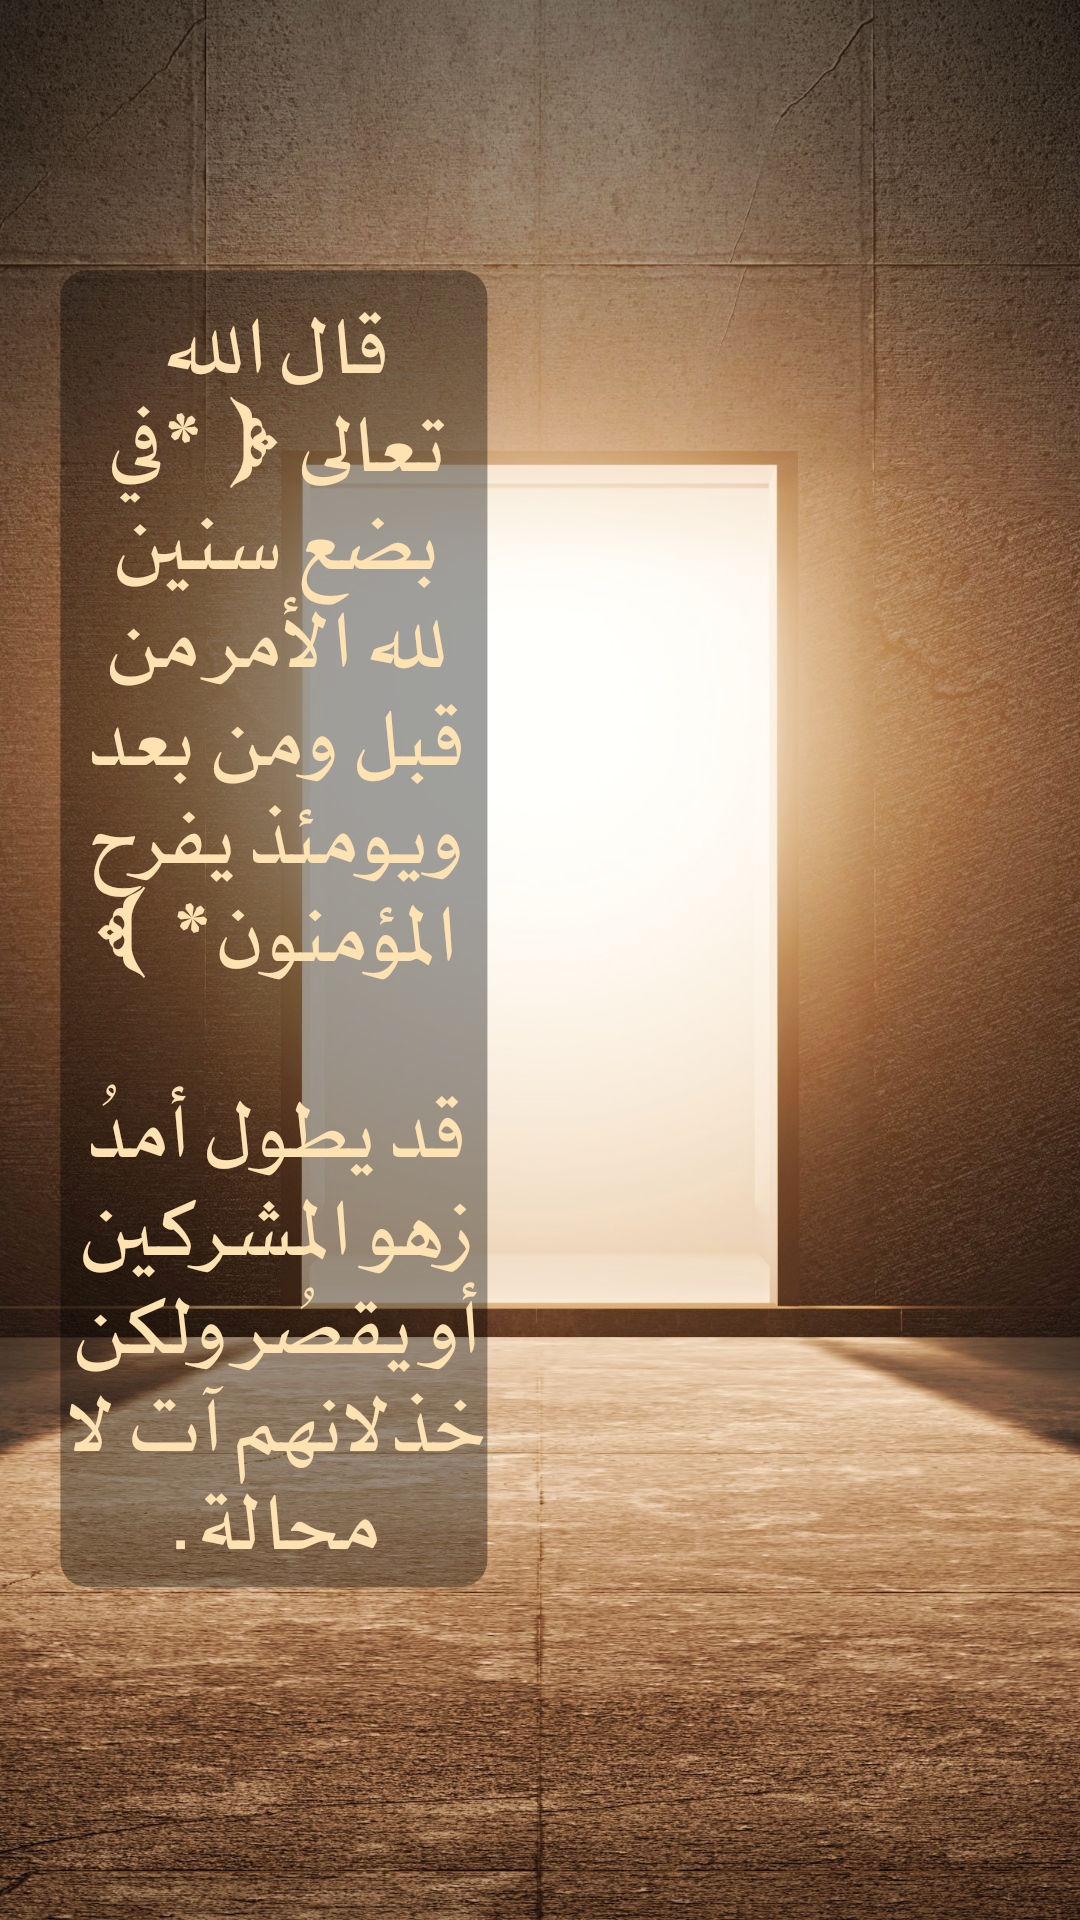 قال الله
تعالى ﴿ *في
بضع سنين
لله الأمر من
قبل ومن بعد
ويومئذ يفرح
المؤمنون* ﴾
قد يطول أمدُ
زهو المشركين
أو يقصُر ولكن
خذلانهم آت لا
محالة .